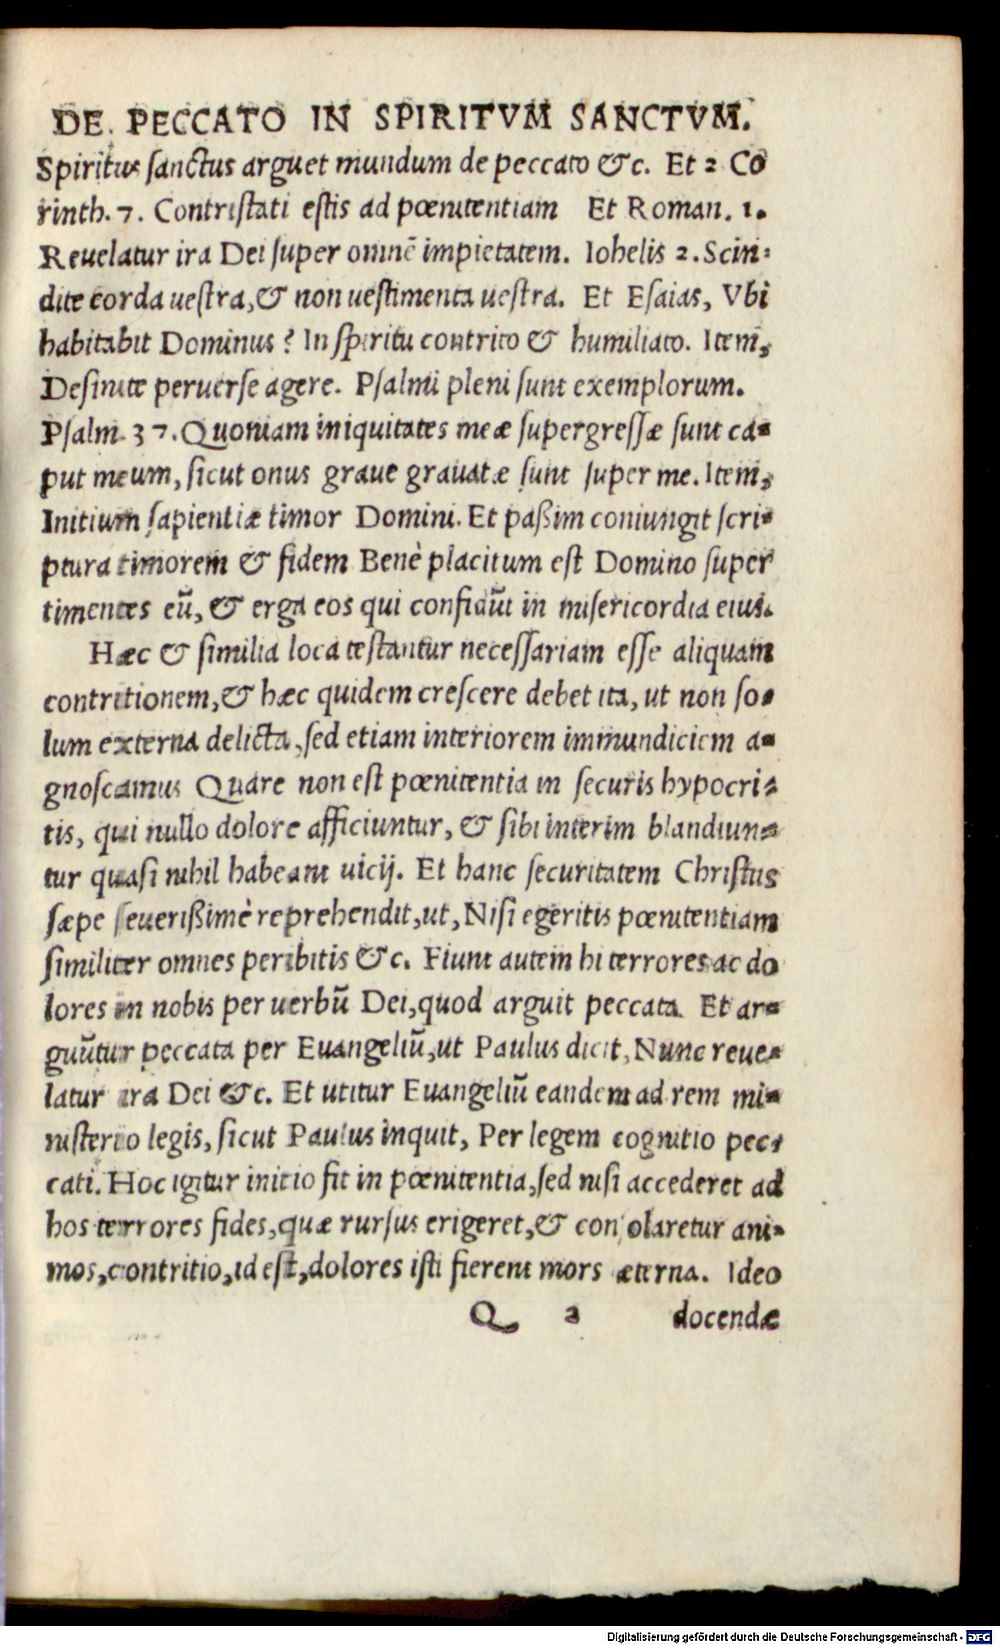 DE PECCATO IN SPIRITVM SANCTVM.
Spiritus sanctus arguet mundum de peccato &c. Et 2 Co
rinth. 7. Contristati estis ad pœnitentiam Et Roman. 1.
Reuelatur ira Dei super omnē impietatem. Iohelis 2. Scin-
dite corda uestra, & non uestimenta uestra. Et Esaias, Vbi
habitabit Dominus? In spiritu contrito & humiliato. Item,
Desinite peruerse agere. Psalmi pleni sunt exemplorum.
Psalm. 37. Quoniam iniquitates meæ supergressæ sunt ca-
put meum, sicut onus graue grauatæ sunt super me. Item,
Initium sapientiæ timor Domini. Et paßim coniungit scri-
ptura timorem & fidem Benè placitum est Domino super
timentes eū, & erga eos qui confidūt in misericordia eius.
Hæc & similia loca testantur necessariam esse aliquam
contritionem, & hæc quidem crescere debet ita, ut non so-
lum externa delicta, sed etiam interiorem immundiciem a-
gnoscamus Quare non est pœnitentia in securis hypocri-
tis, qui nullo dolore afficiuntur, & sibi interim blandiun-
tur quasi nihil habeant uicij. Et hanc securitatem Christus
sæpe seuerißimè reprehendit, ut, Nisi egeritis pœnitentiam
similiter omnes peribitis &c. Fiunt autem hi terrores ac do
lores in nobis per uerbū Dei, quod arguit peccata. Et ar-
guūtur peccata per Euangeliū, ut Paulus dicit, Nunc reue-
latur ira Dei &c. Et utitur Euangeliū eandem ad rem mi-
nisterio legis, sicut Paulus inquit, Per legem cognitio pec-
cati. Hoc igitur initio fit in pœnitentia, sed nisi accederet ad
hos terrores fides, quæ rursus erigeret, & consolaretur ani-
mos, contritio, id est, dolores isti fierent mors æterna. Ideo
Q 2 docendæ
Digitalisierung gefördert durch die Deutsche Forschungsgemeinschaft - DFG